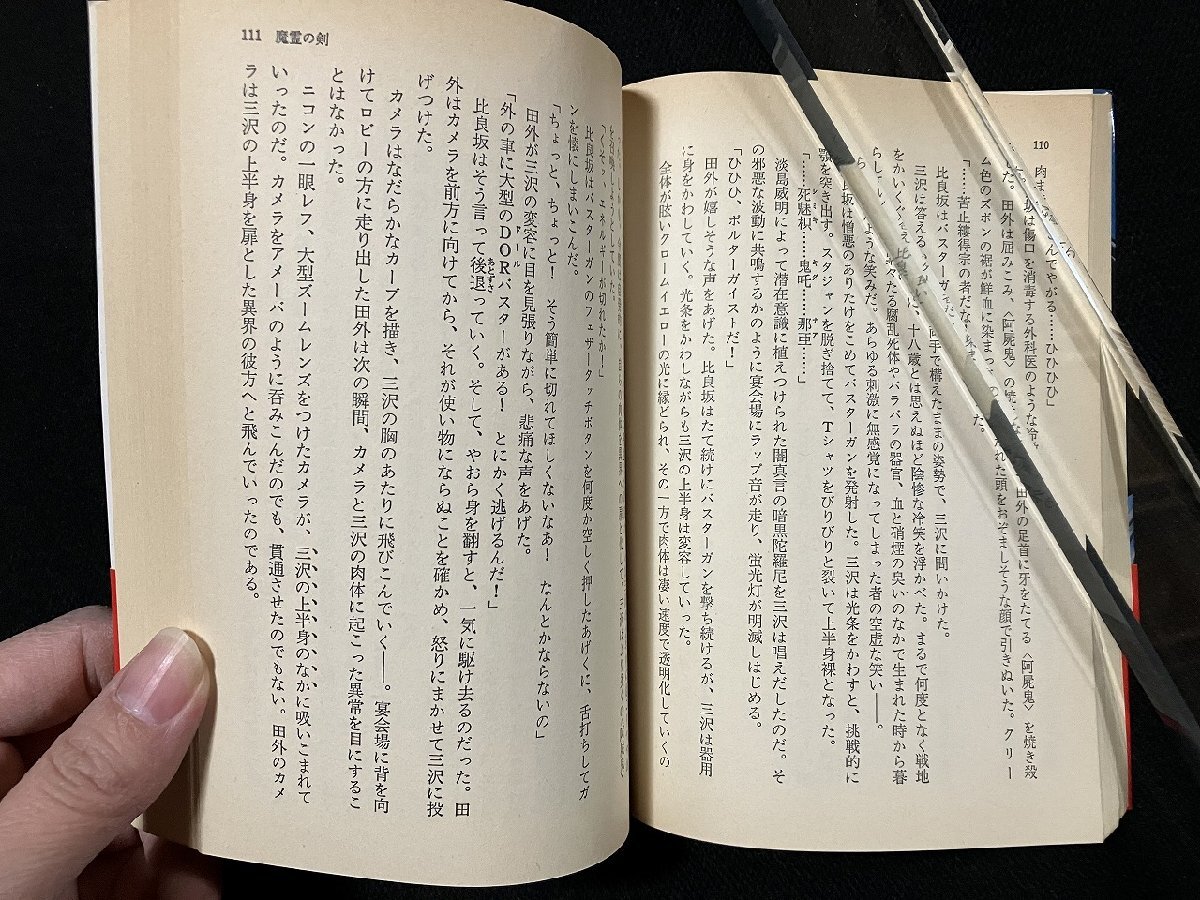 110
肉ま
んでやがる……ひひひひ」
坂は傷口を消毒する外科医のような冷
た。田外は屈みこみ、〈阿屍鬼〉の
田外の足首に牙をたてる〈阿屍鬼〉を焼き殺
れた頭をおぞましそうな顔で引きぬいた。クリー
ム色のズボンの裾が鮮血に染まっ
た。
「……苦止縷得宗の者だな
比良坂はバスターガ
両手で構えたままの姿勢で、三沢に問いかけた。
三沢に答える
に、十八歳とは思えぬほど陰惨な冷笑を浮かべた。まるで何度となく戦地
をかいくぐ
たる腐乱死体やバラバラの器官、血と硝煙の臭いのなかで生まれた時から暮
らし
ような笑みだ。あらゆる刺激に無感覚になってしまった者の空虚な笑い――。
良坂は憎悪のありたけをこめてバスターガンを発射した。三沢は光条をかわすと、挑戦的に
顎を突き出す。スタジャンを脱ぎ捨てて、Tシャツをびりびりと裂いて上半身裸となった。
「……死魅枳……鬼吒……那亜……」
淡島威明によって潜在意識に植えつけられた闇真言の暗黒陀羅尼を三沢は唱えだしたのだ。そ
の邪悪な波動に共鳴するかのように宴会場にラップ音が走り、蛍光灯が明滅しはじめる。
「ひひひ、ポルターガイストだ！
田外が嬉しそうな声をあげた。比良坂はたて続けにバスターガンを撃ち続けるが、三沢は器用
に身をかわしていく。光条をかわしながらも三沢の上半身は変容していった。
全体が眩いクロームイエローの光に縁どられ、その一方で肉体は凄い速度で透明化していくの
111 魔霊の剣
「くそッ、エネルギーが切れたか！」
比良坂はバスターガンのフェザータッチボタンを何度か空しく押したあげくに、舌打ちしてガ
ンを懐にしまいこんだ。
「ちょっと、ちょっと！ そう簡単に切れてほしくないなあ！ なんとかならないの」
田外が三沢の変容に目を見張りながら、悲痛な声をあげた。
「外の車に大型のDORバスターがある！ とにかく逃げるんだ！」
比良坂はそう言って後退っていく。そして、やおら身を翻すと、一気に駆け去るのだった。田
外はカメラを前方に向けてから、それが使い物にならぬことを確かめ、怒りにまかせて三沢に投
げつけた。
カメラはなだらかなカーブを描き、三沢の胸のあたりに飛びこんでいく――。宴会場に背を向
けてロビーの方に走り出した田外は次の瞬間、カメラと三沢の肉体に起こった異常を目にするこ
とはなかった。
ニコンの一眼レス、大型ズームレンズをつけたカメラが、三沢の上半身のなかに吸いこまれて
いったのだ。カメラをアメーバのように呑みこんだのでも、貫通させたのでもない。田外のカメ
ラは三沢の上半身を扉とした異界の彼方へと飛んでいったのである。